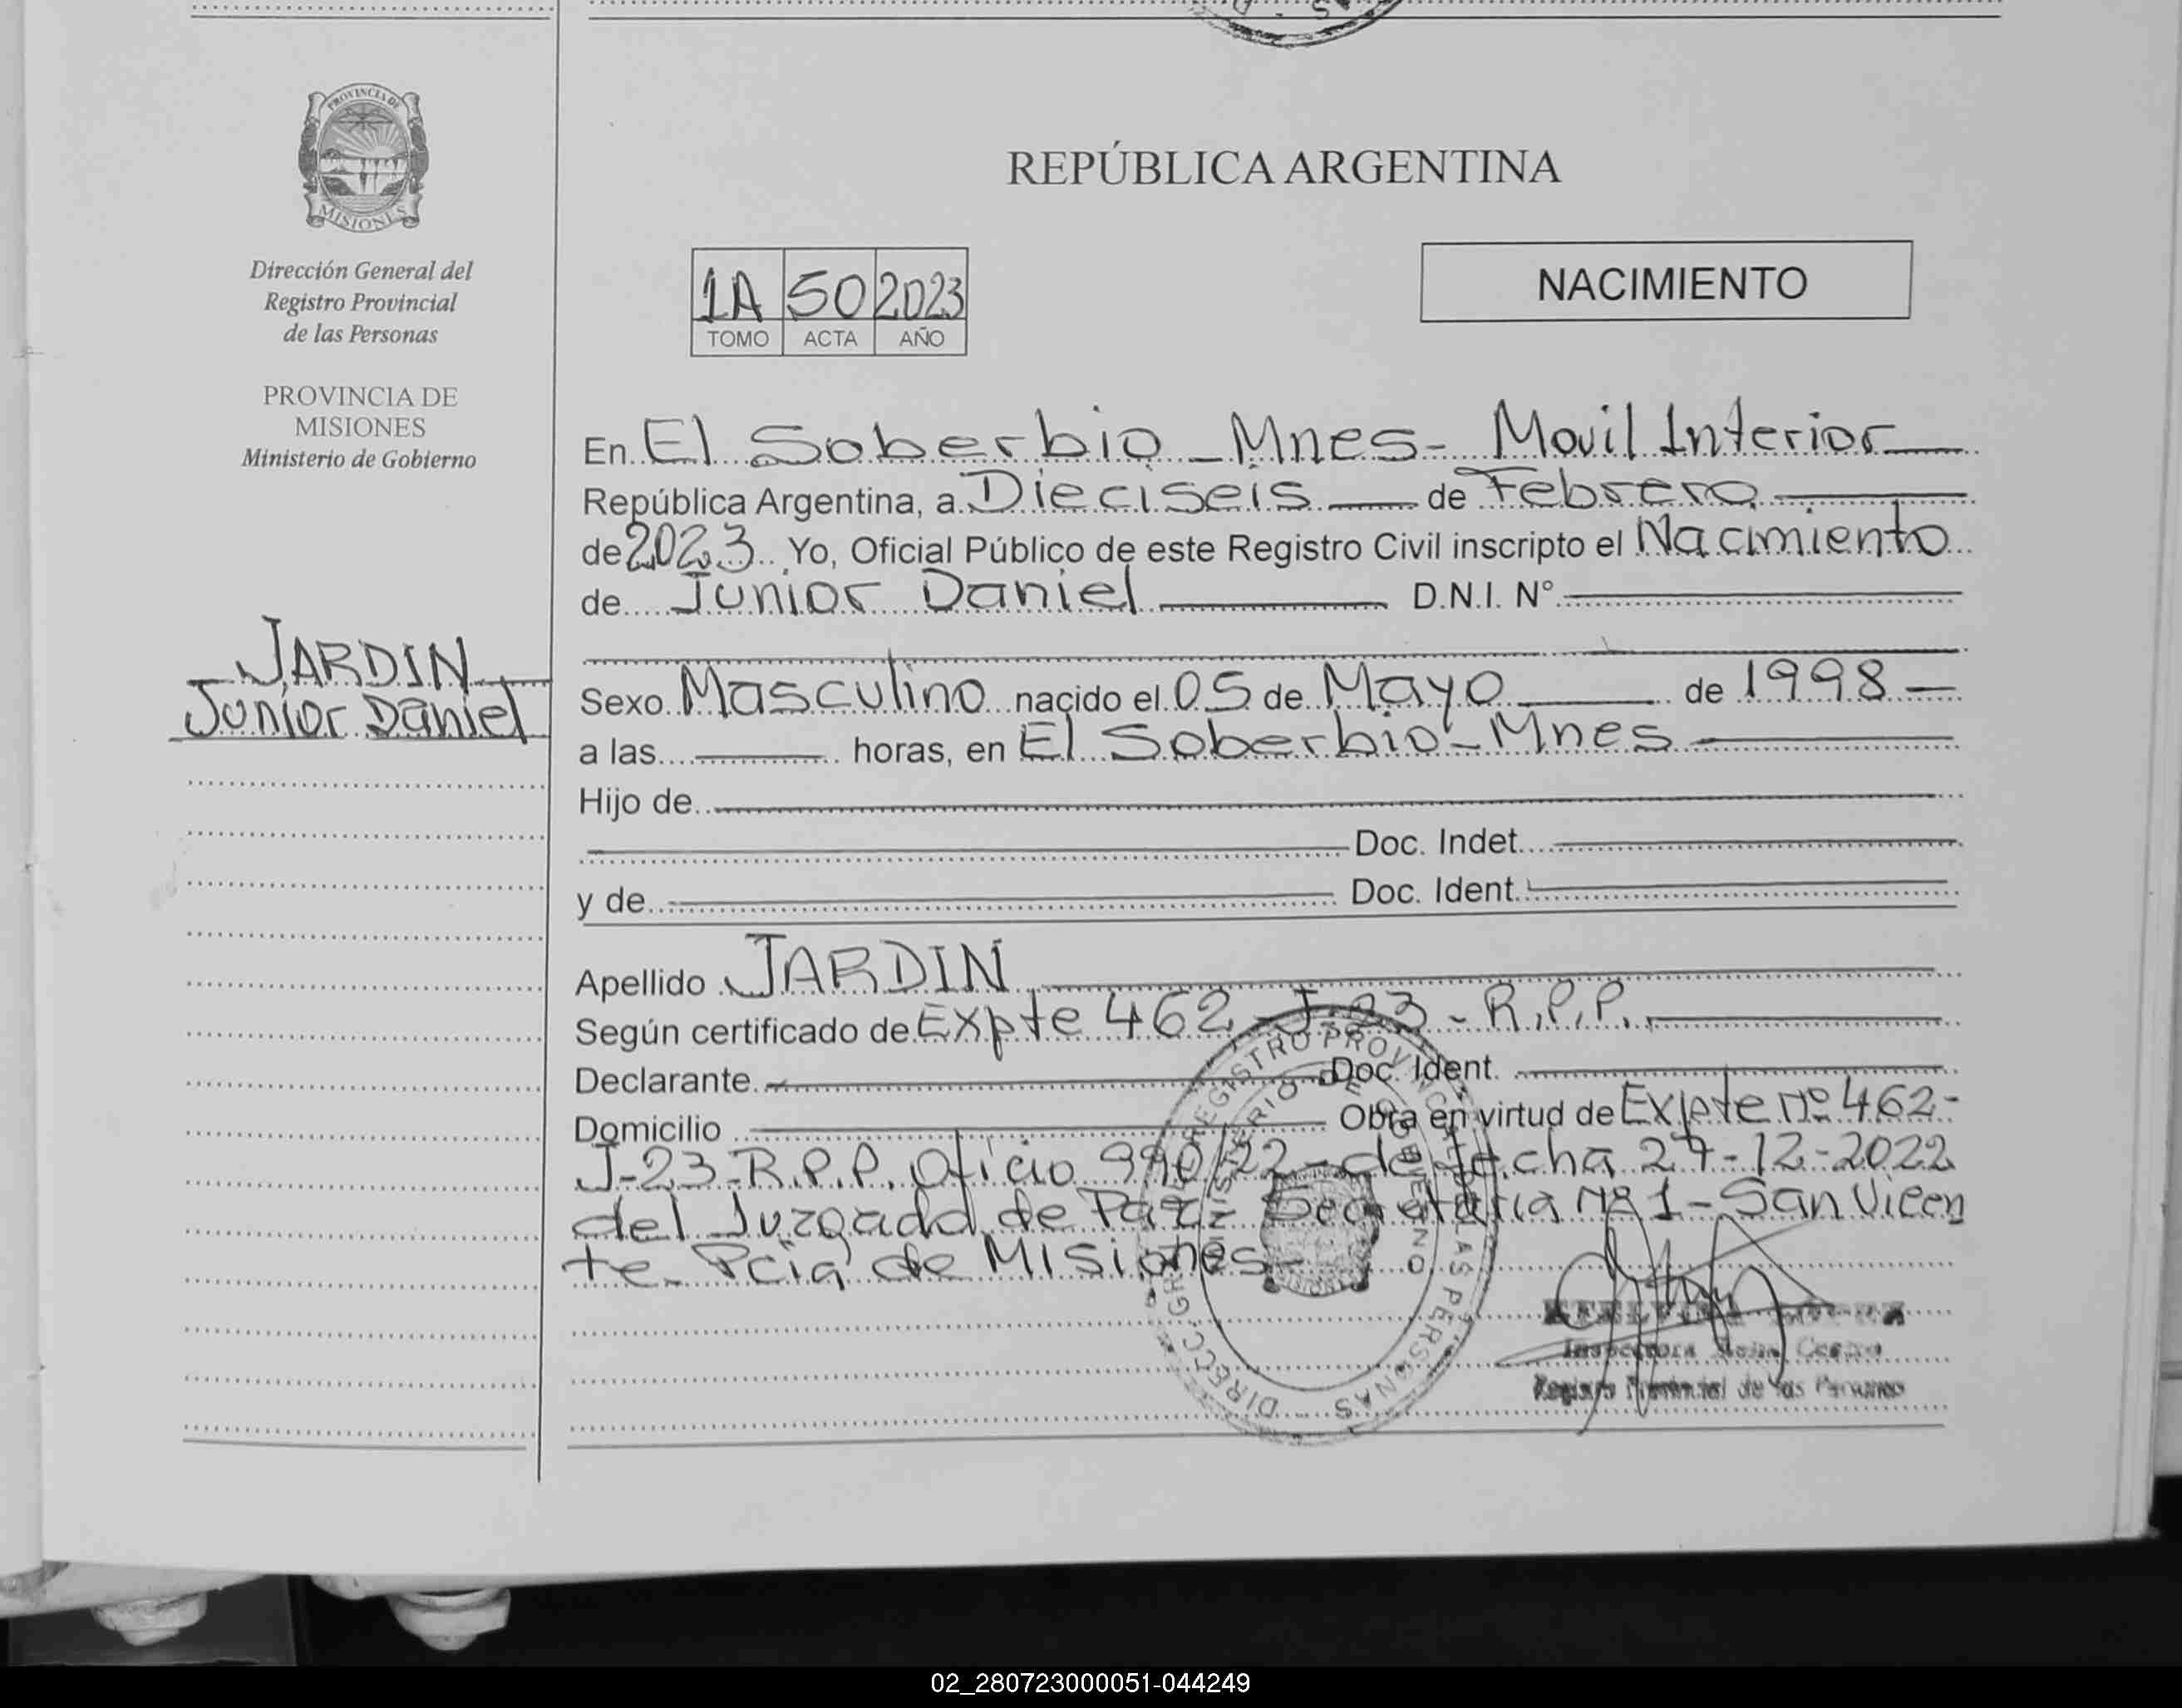 PROVINCIA DE
MISIONES
Dirección General del
Registro Provincial
de las Personas
PROVINCIA DE
MISIONES
Ministerio de Gobierno
JARDIN
Junior Daniel
REPÚBLICA ARGENTINA
1A 50 2023
TOMO ACTA AÑO
NACIMIENTO
En El Soberbio - Mnes - Movil Interior
República Argentina, a Dieciseis de Febrero
de 2023 Yo, Oficial Público de este Registro Civil inscripto el Nacimiento
de Junior Daniel D.N.I. Nº
Sexo Masculino nacido el 05 de Mayo de 1998
a las horas, en El Soberbio - Mnes
Hijo de
Doc. Indet.
y de Doc. Ident.
Apellido JARDIN
Según certificado de Expte 462 - J-23 - R.P.P.
Declarante Doc. Ident.
Domicilio Obra en virtud de Expte Nº 462-
J-23-R.P.P. Oficio 990/22 - de fecha 27-12-2022
del Juzgado de Paz - Secretaria Nº 1 - San Vicen
te - Pcia de Misiones -
REGISTRO PROVINCIAL DE LAS PERSONAS
MINISTERIO DE GOBIERNO
Inspectora
Registro Provincial de las Personas
02_280723000051-044249